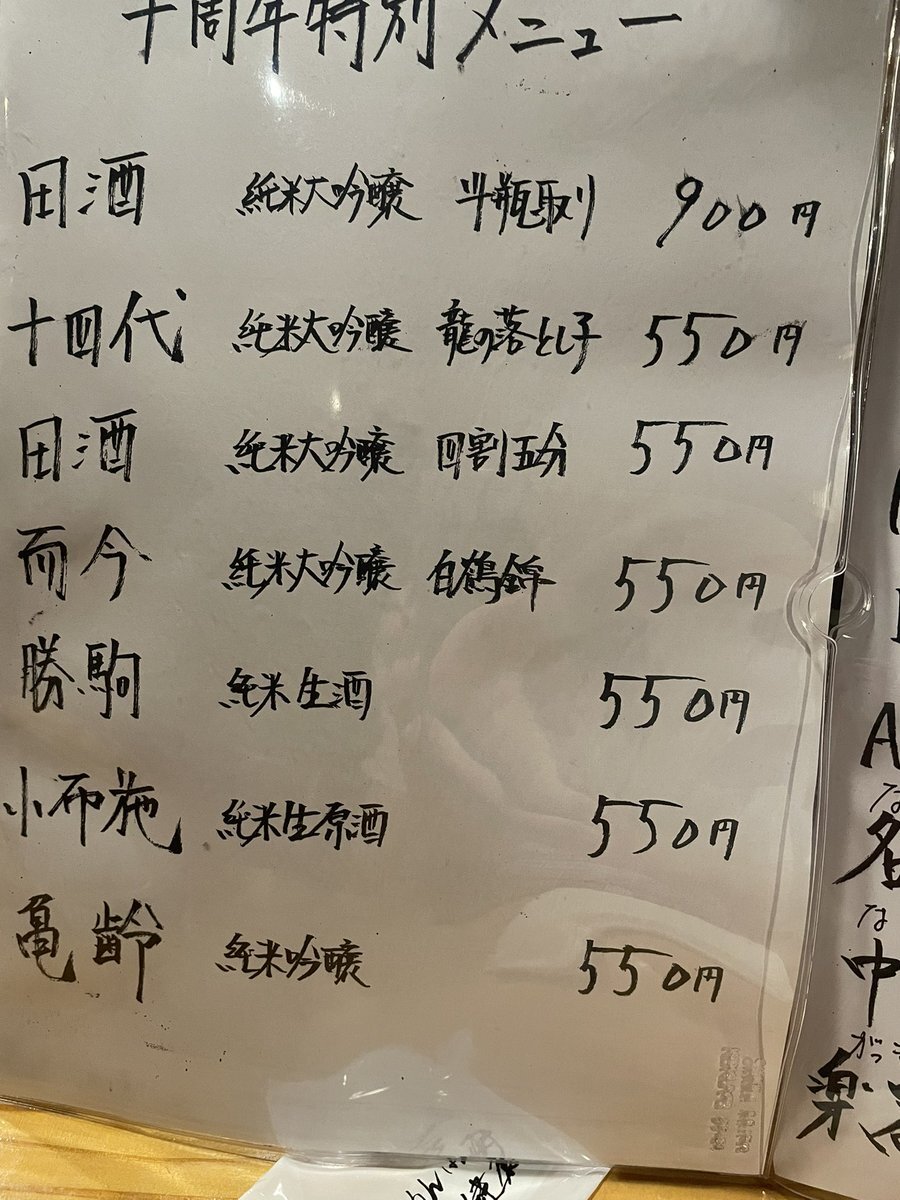 十周年特別メニュー
田酒 純米大吟醸 斗瓶取り 900円
十四代 純米大吟醸 龍の落とし子 550円
田酒 純米大吟醸 四割五分 550円
而今 純米大吟醸 白鶴錦 550円
勝駒 純米生酒 550円
小布施 純米生原酒 550円
亀齢 純米吟醸 550円
A
な
名
な
中
がっ
楽